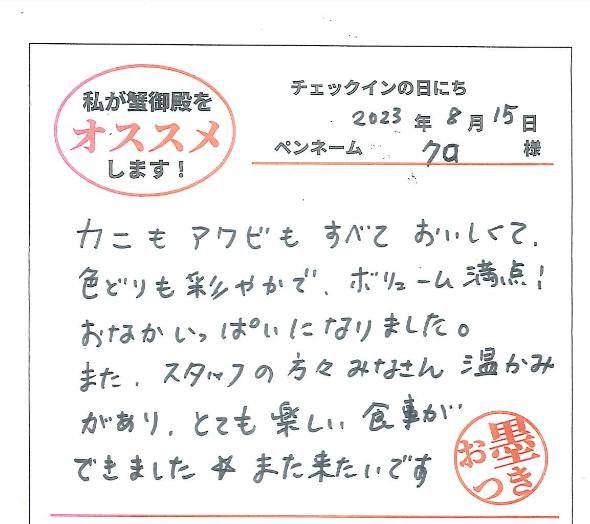 私が蟹御殿を
オススメ
します!
チェックインの日にち
2023 年 8 月 15 日
ペンネーム クロ 様
カニもアワビもすべておいしくて、
色どりも彩やかで、ボリューム満点!
おなかいっぱいになりました。
また、スタッフの方々みなさん温かみ
があり、とても楽しい食事が
できました☆また来たいです
お墨
つき